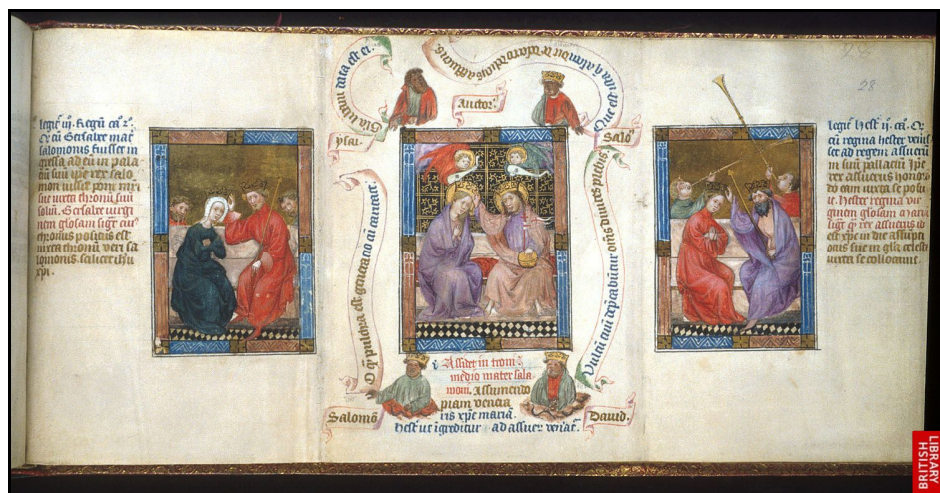 legit iij. Regū ca. 2º.
qr cū Bersabee mat
salomonis fuisset in
gressa ad eū in pala
ciū suū ipse rex salo
mon iussit poni mri
sue iuxta thronū suū
soliū. Bersabee virgi
nem glosam sigt cui
thronus positus est
iuxta thronū veri sa
lomonis. scilicet ihū
xpi.
Gloria libani data est ei.
ysai.
Auctor.
Que est illa que ascendit de deserto deliciis affluens
Salo.
O qr pulchra est generacio cū caritate.
Vultū tuū deprecabūtur oms diuites plebis.
Assidet in troni
medio mater sala
mom. Assumendo
piam venera
ris xpe mariā.
Hest ut īgreditur ad assuer venat.
Salomō
Dauid.
28
legit hest ij. ca. qr
cū regina hester venis
set ad regem assuerū
in suū pallaciū ipe
rex assuerus honorā
do eam iuxta se posu
it. Hester regina vir
ginem gloam maria
sigt qr rex assuerus id
est xpc in die assūpti
onis sue in glā celesti
iuxta se collocauit.
BRITISH
LIBRARY